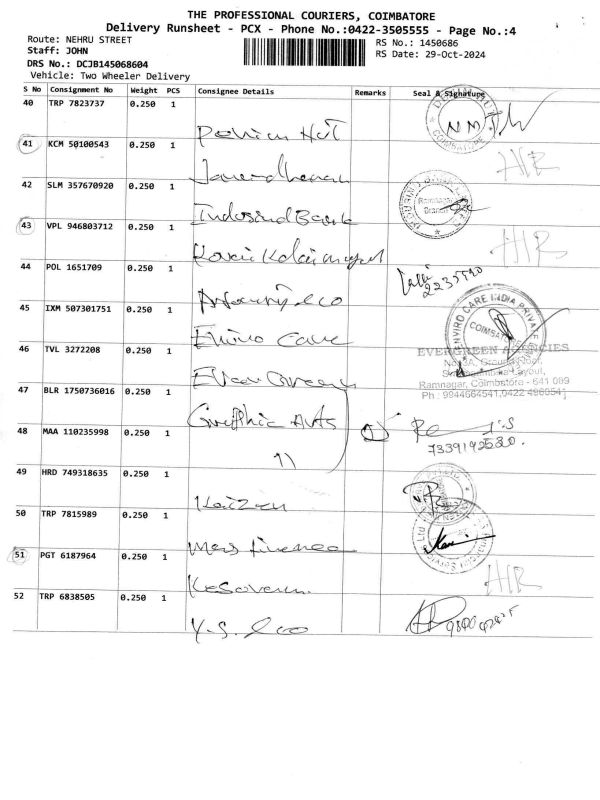 THE PROFESSIONAL COURIERS, COIMBATORE
Delivery Runsheet - PCX - Phone No.:0422-3505555 - Page No.:4
Route: NEHRU STREET
RS No.: 1450686
Staff: JOHN
RS Date: 29-Oct-2024
DRS No.: DCJB145068604
Vehicle: Two Wheeler Delivery
S No Consignment No Weight PCS Consignee Details Remarks Seal & Signature
40 TRP 7823737 0.250 1
41 KCM 50100543 0.250 1
HR
42 SLM 357670920 0.250 1
IndusindBank
Ramnagar
Branch
43 VPL 946803712 0.250 1
HR
44 POL 1651709 0.250 1
45 IXM 507301751 0.250 1
Enviro Care
ENVIRO CARE INDIA PRIVATE
COIMBATORE
46 TVL 3272208 0.250 1
Evergreen
EVERGREEN AGENCIES
Ramnagar, Coimbatore - 641 009
47 BLR 1750736016 0.250 1
Graphic Arts
48 MAA 110235998 0.250 1
11
49 HRD 749318635 0.250 1
Kaizen
50 TRP 7815989 0.250 1
51 PGT 6187964 0.250 1
Kesavan
HR
52 TRP 6838505 0.250 1
Y.S. &co